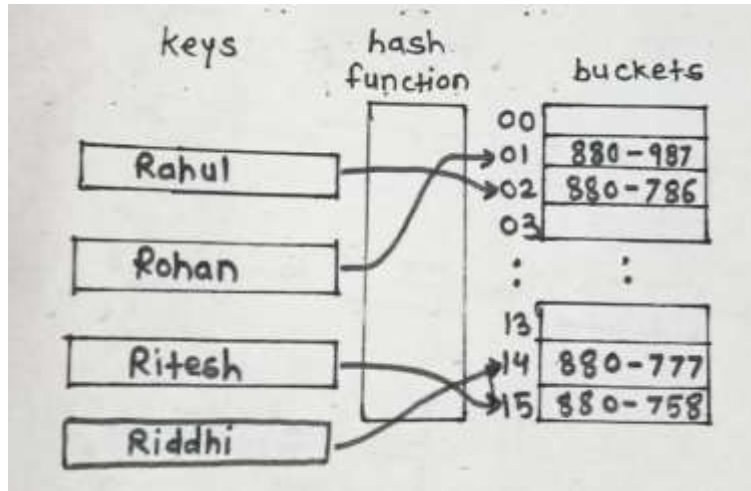 keys
hash
function
buckets
Rahul
Rohan
Ritesh
Riddhi
00
01 880-987
02 880-786
03
13
14 880-777
15 880-758